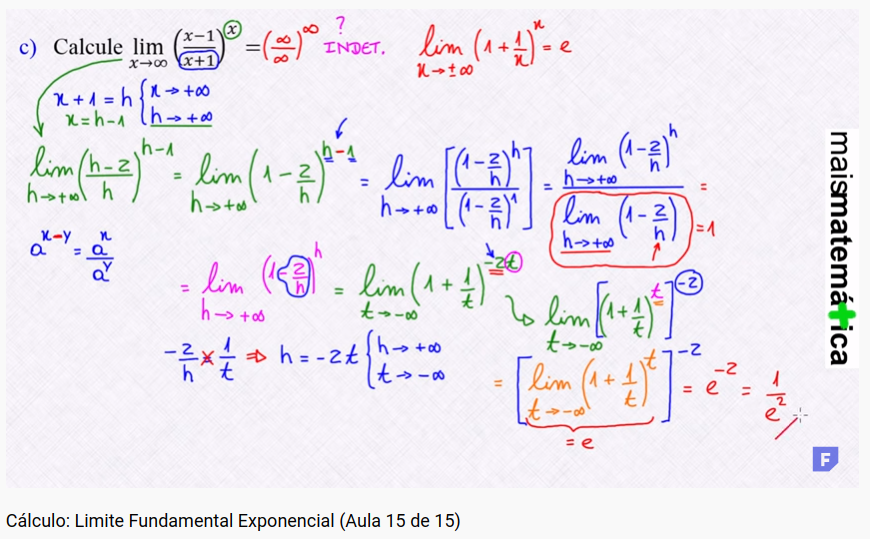 c) Calcule lim x→∞ (x−1/x+1)^x = (∞/∞)^∞ ? INDET. lim x→±∞ (1 + 1/x)^x = e
x + 1 = h { x → +∞
x = h − 1 { h → +∞
lim h→+∞ (h−2/h)^h−1 = lim h→+∞ (1 − 2/h)^h−1 = lim h→+∞ [(1−2/h)^h / (1−2/h)^1] = lim h→+∞ (1−2/h)^h / lim h→+∞ (1−2/h) = 1 =
a^x−y = a^x/a^y
= lim h→+∞ (1−2/h)^h = lim t→−∞ (1 + 1/t)^−2t ↳ lim t→−∞ [(1+1/t)^t]^−2
−2/h × 1/t ⇒ h = −2t { h → +∞
{ t → −∞
= [lim t→−∞ (1 + 1/t)^t]^−2 = e^−2 = 1/e^2
= e
maismatemática
F
Cálculo: Limite Fundamental Exponencial (Aula 15 de 15)